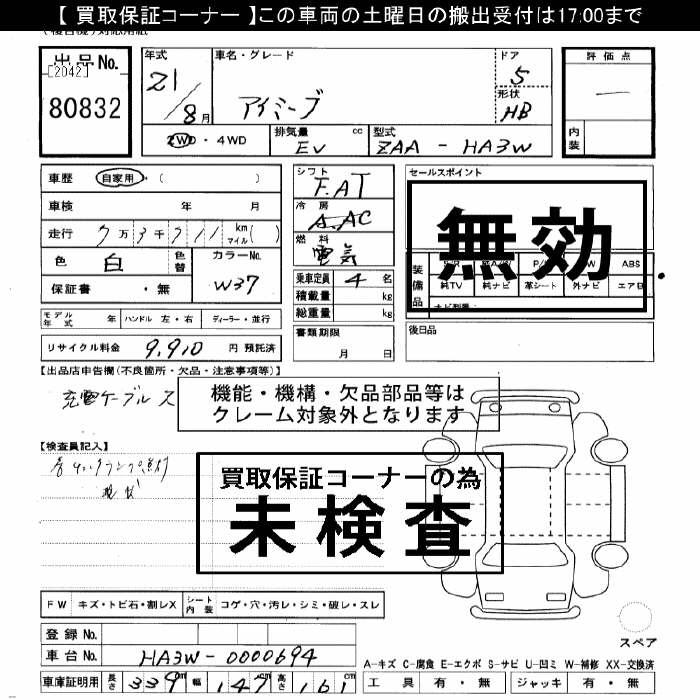 【 買取保証コーナー 】この車両の土曜日の搬出受付は17:00まで
出品No.
[2042]
80832
年式
21/8月
車名・グレード
アイミーブ
ドア
5
形状
HB
評価点
内装
2WD・4WD
排気量 cc
EV
型式
ZAA - HA3W
車歴 自家用・( )
車検 年 月
走行 7万3千911 km マイル( )
色 白 色替
カラーNo.
W37
保証書 ・無
シフト
F.AT
冷房
A.AC
燃料
電気
乗車定員 4 名
積載量 kg
総重量 kg
書類期限
月 日
セールスポイント
無効
装備品
ABS
純TV 純ナビ 革シート 外ナビ エアB
後日品
モデル年式 年 ハンドル 左・右 ディーラー・並行
リサイクル料金 9,910 円 預託済
【出品店申告欄(不良箇所・欠品・注意事項等)】
充電ケーブル欠
機能・機構・欠品部品等は
クレーム対象外となります
【検査員記入】
買取保証コーナーの為
未検査
FW キズ・トビ石・割レX シート内装 コゲ・穴・汚レ・シミ・破レ・スレ
登録No.
車台No. HA3W-0000694
車庫証明用 長さ 339 cm 幅 147 cm 高さ 161 cm
スペア
A-キズ C-腐食 E-エクボ S-サビ U-凹ミ W-補修 XX-交換済
工具 有・無 ジャッキ 有・無